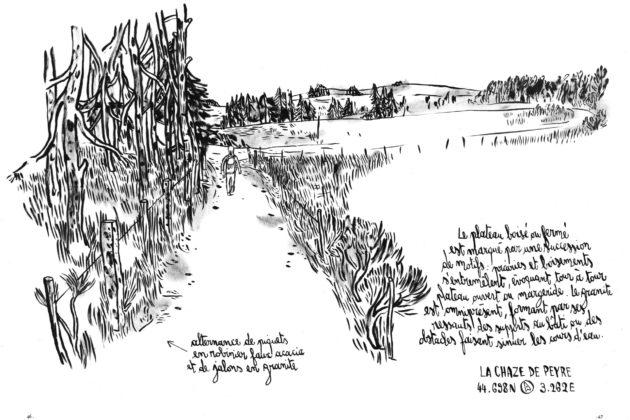 Le plateau boisé ou fermé
est marqué par une succession
de motifs : prairies et boisements
s'entremêlent, évoquant tour à tour
plateau ouvert ou margeride. le granite
est omniprésent, formant par ses
ressauts des supports au bâti ou des
obstacles faisant sinuer les cours d'eau.
alternance de piquets
en robinier faux acacia
et de jalons en granite
LA CHAZE DE PEYRE
44.698N A 3.202E